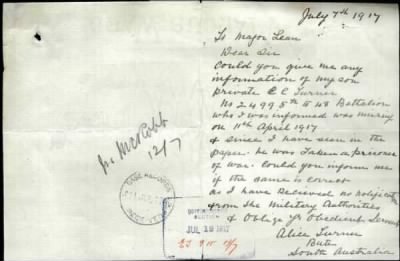 July 7th 1917
To Major Lean
Dear Sir
Could you give me any
information of my son
private E C Turner
No 2499 5th to 48 Battalion
who I was informed was missing
on 11th April 1917
& since I have seen in the
paper he was Taken a prisoner
of war. Could you inform me
if the same is correct
as I have Recieved no notification
from The Military Authorities
& Oblige Yr Obedient Servant
Alice Turner
Bute
South Australia
12/7
BASE RECORDS
JUL 19 1917